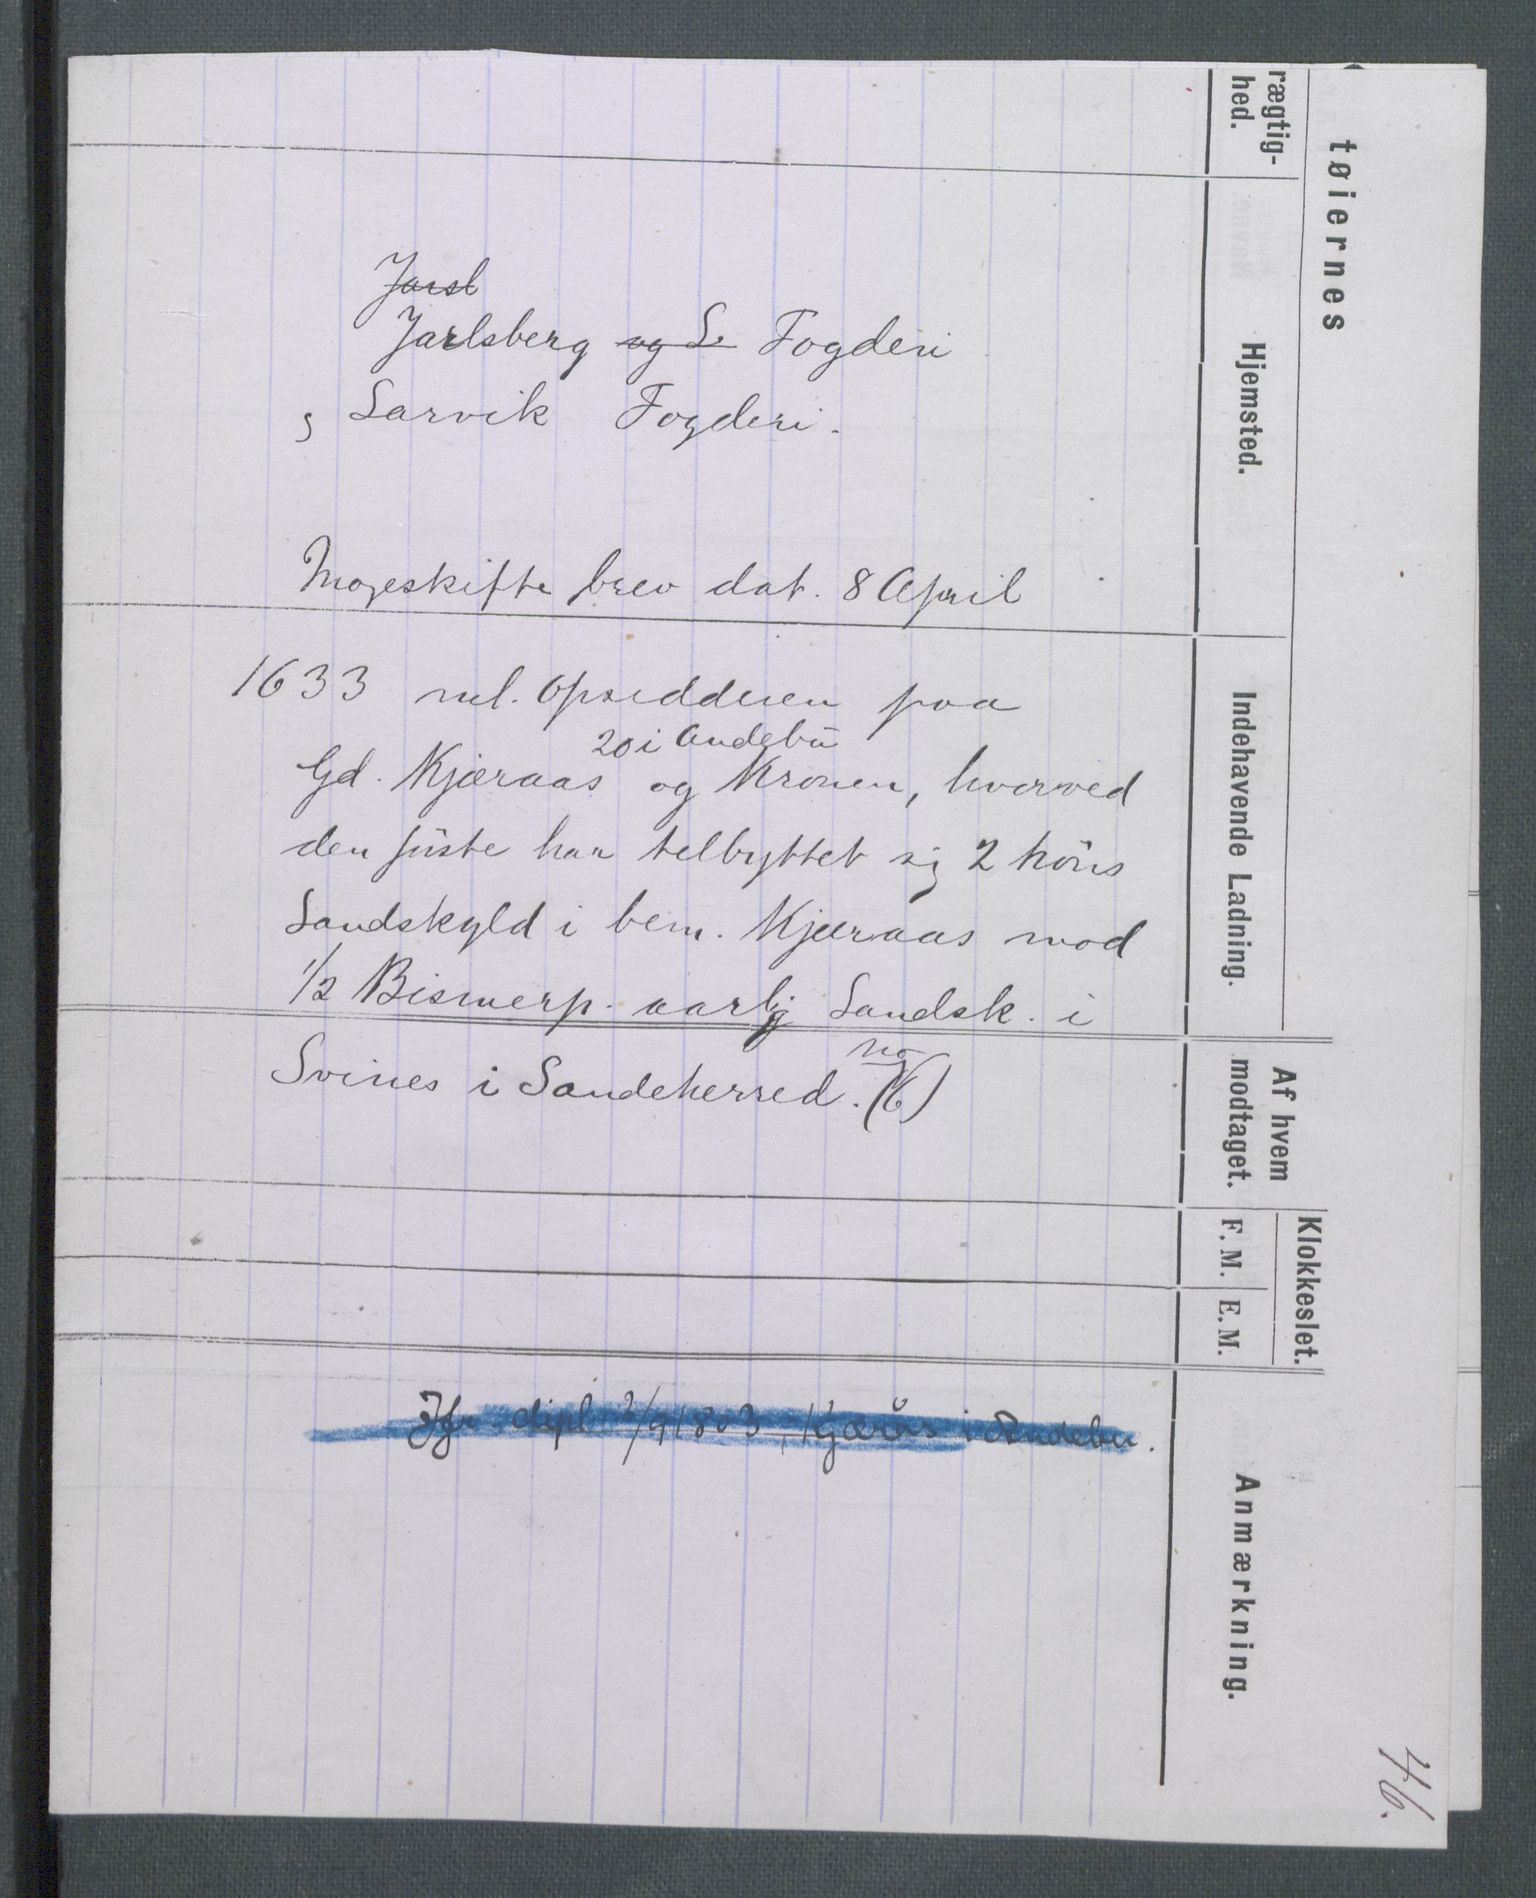 Jarsl
Jarlsberg og L. Fogderi
s Larvik Fogderi.
Mageskifte brev dat. 8 April
1633 ml. Opsidderen paa
20 i Andebu
Gd. Kjæraas og Kronen, hvorved
den første har tilbyttet sig 2 höns
Landskyld i bem. Kjæraas mod
1/2 Bismerp. aarlig Landsk. i
Svines i Sandeherred. (6)
no
Jfr. dipl. 2/9 1803, Kjærås i Andebu.
46.
tøiernes
rægtig-
hed.
Hjemsted.
Indehavende Ladning.
Af hvem
modtaget.
Klokkeslet.
F. M.
E. M.
Anmærkning.